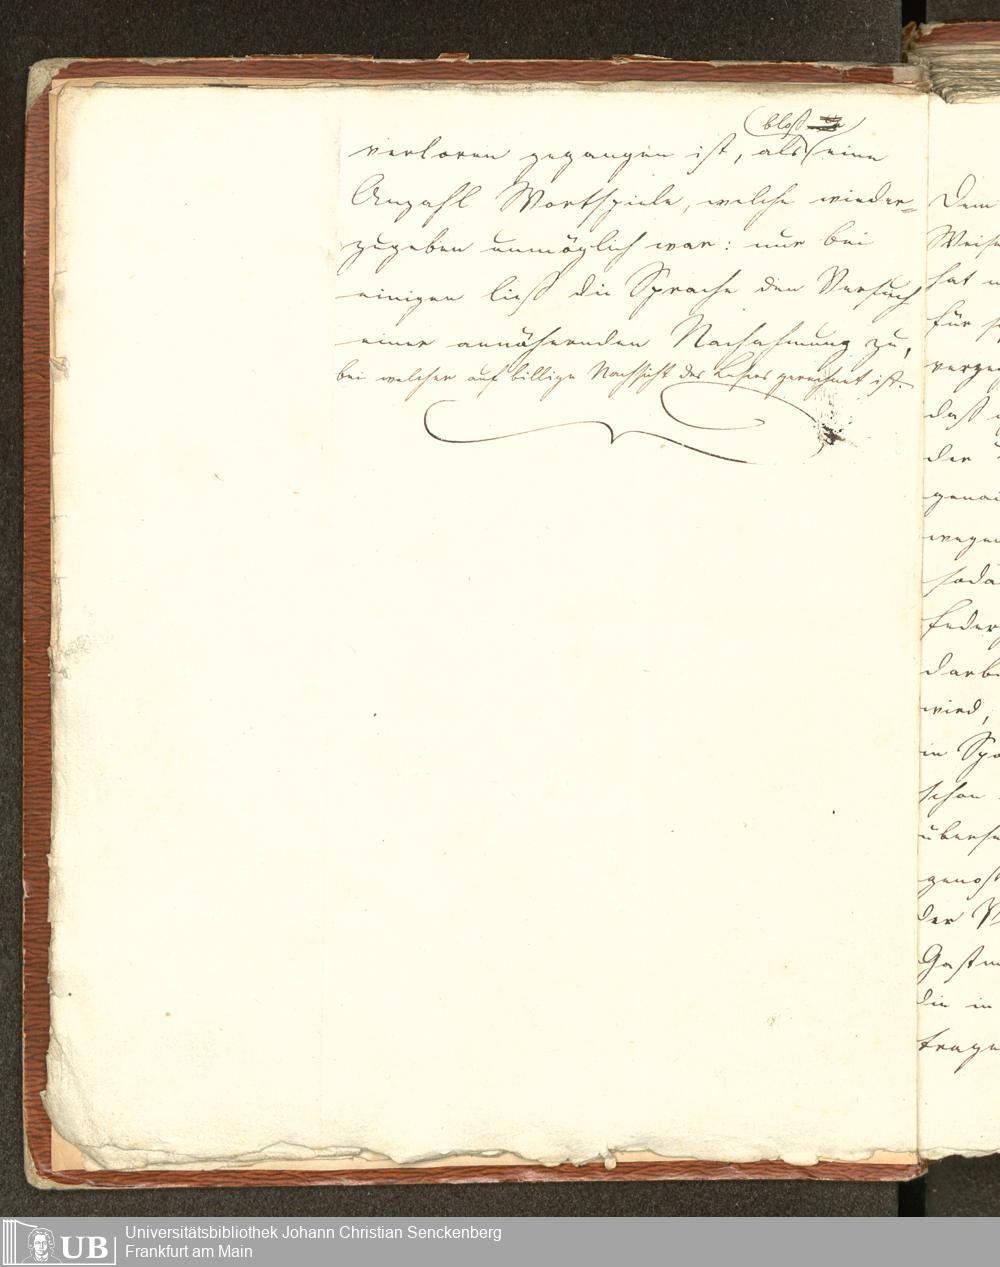 bloß
verloren gegangen ist, als eine
Anzahl Wortspiele, welche wieder=
zugeben unmöglich war: nur bei
einigen ließ die Sprache den Versuch
einer annähernden Nachahmung zu,
bei welcher auf billige Nachsicht des Lesers gerechnet ist.
Dem
Weise
hat
für
verge
daß
der
genau
wegen
soda
feder
darb
wird,
in Spa
schon
überse
genoß
der V
Gastm
die in
trage
UB Universitätsbibliothek Johann Christian Senckenberg
Frankfurt am Main